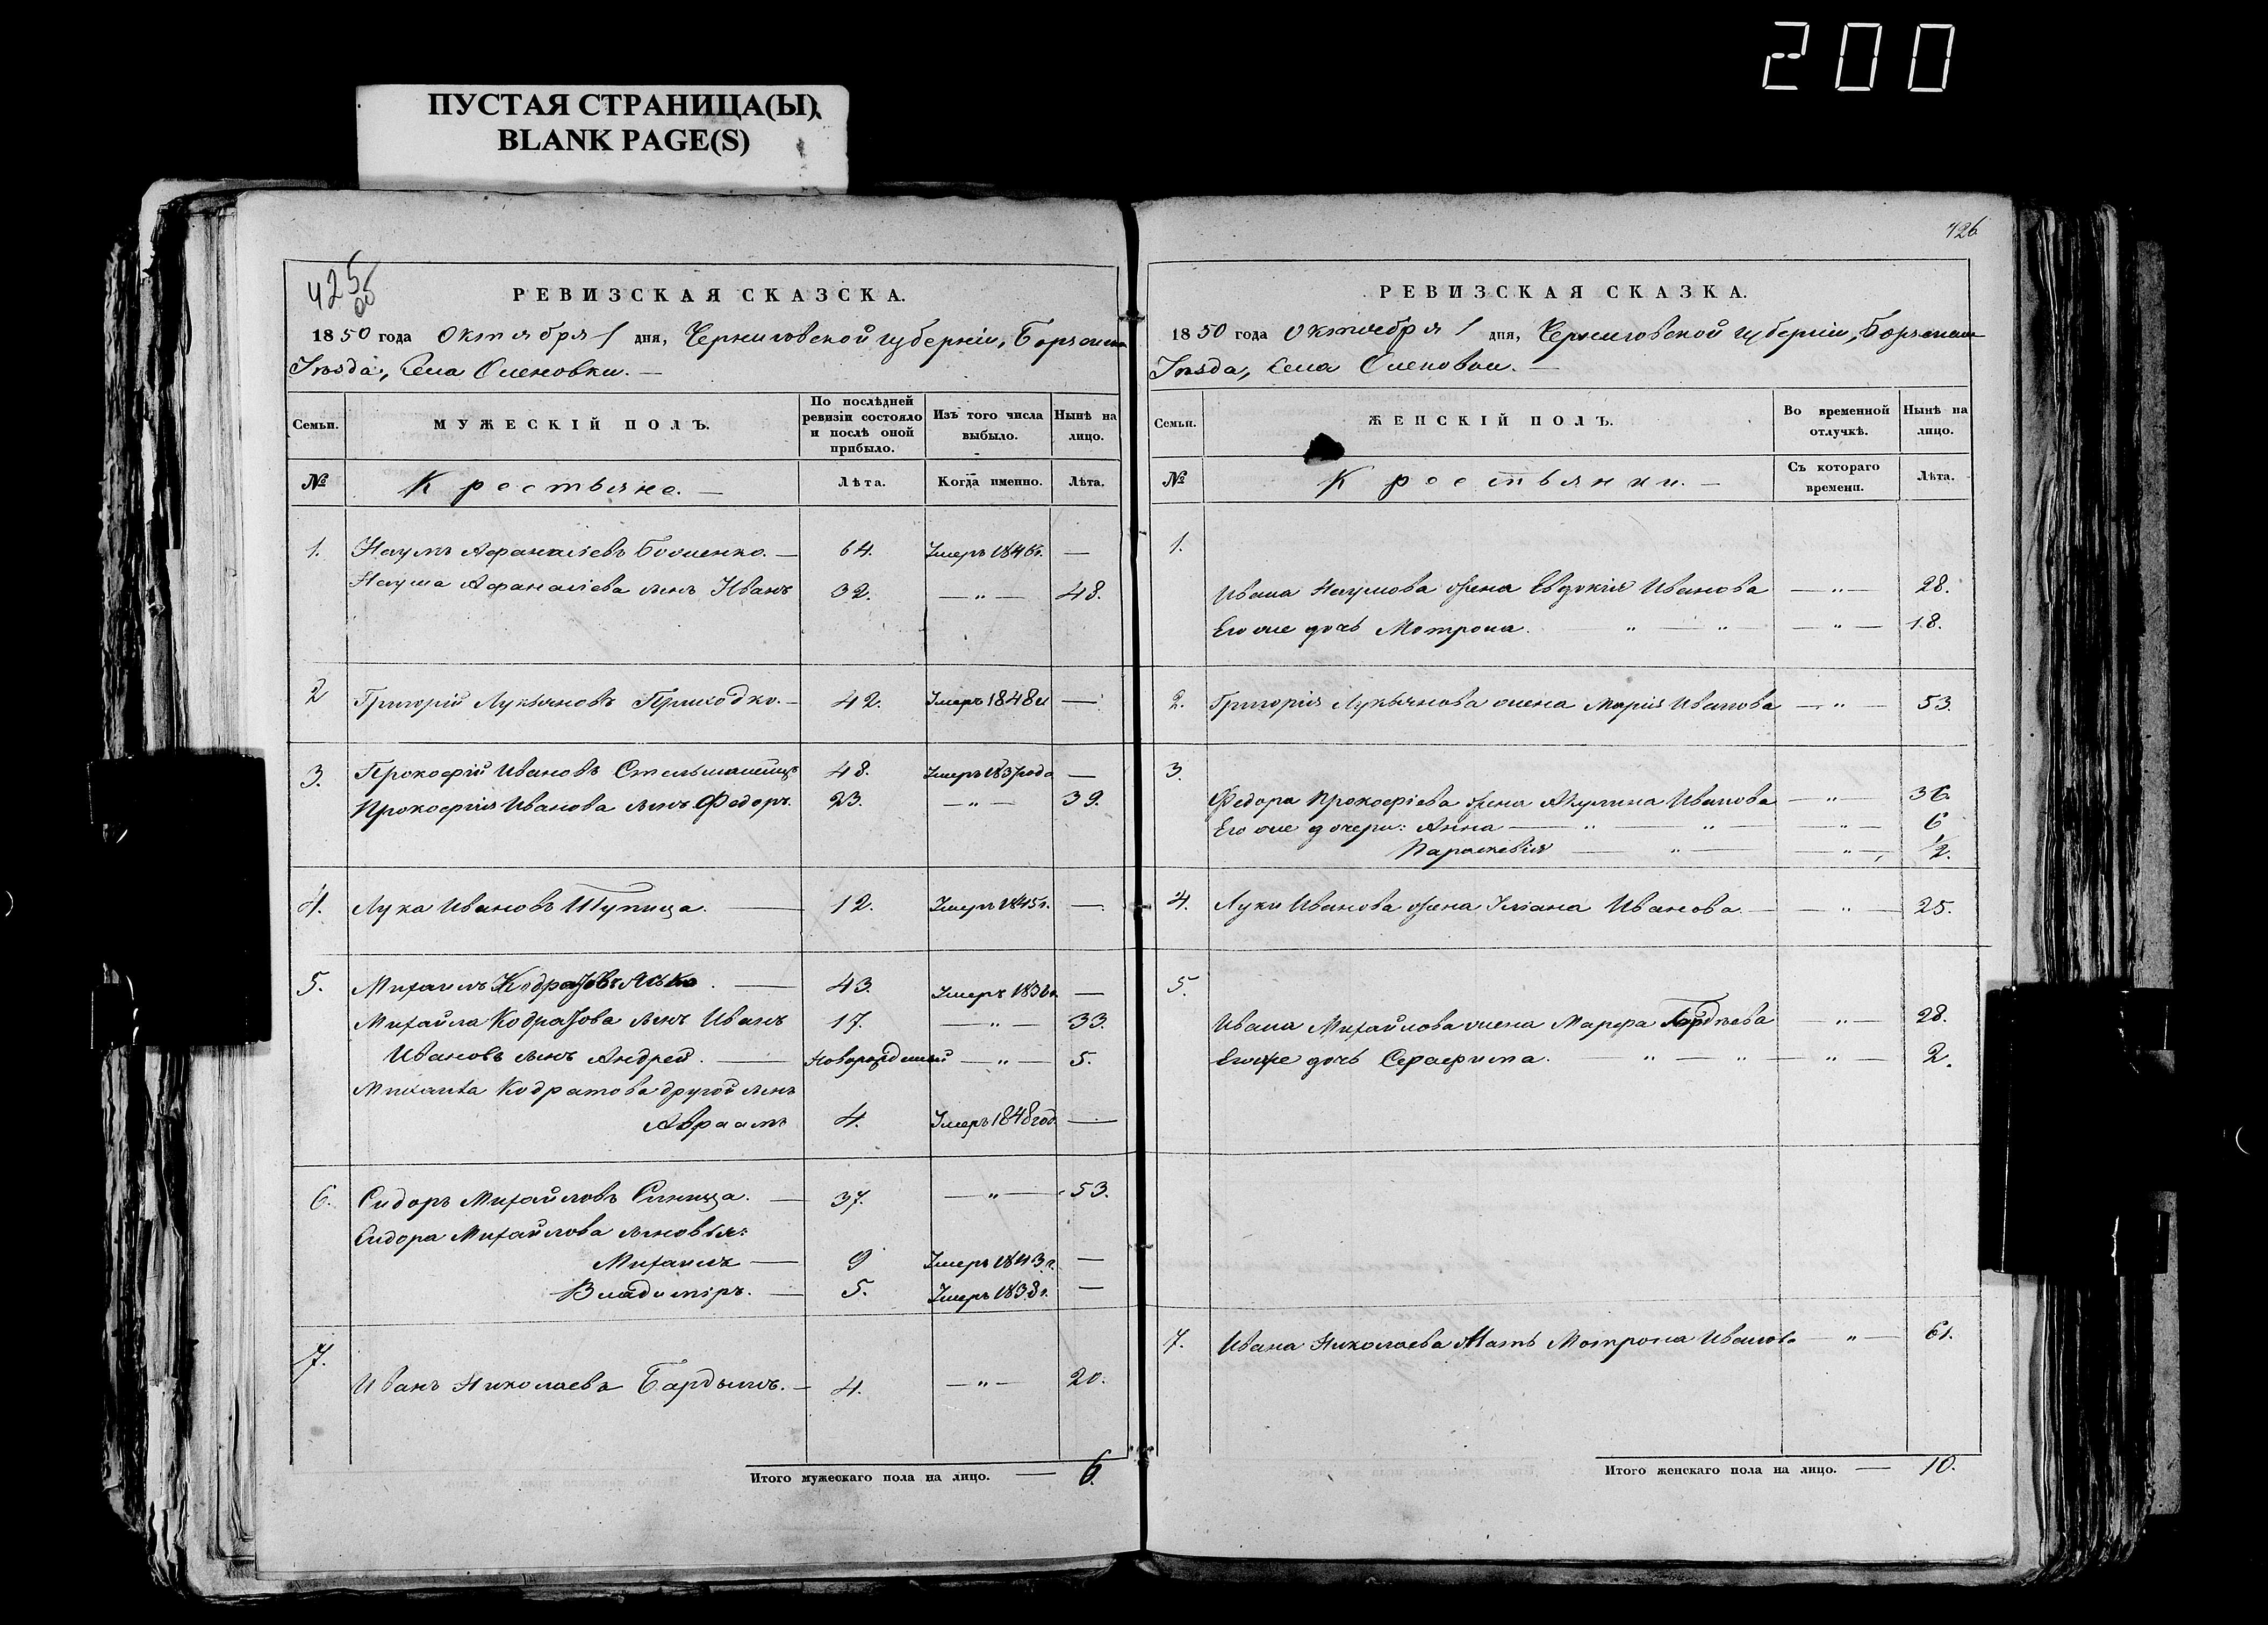 200
ПУСТАЯ СТРАНИЦА(Ы)
BLANK PAGE(S)
425
РЕВИЗСКАЯ СКАЗСКА.
1850 года Октября 1 дня, Черниговской губерніи, Борзенскаго
Уѣзда, Села Оленовки. —
Семьи.
МУЖЕСКІЙ ПОЛЪ.
По послѣдней ревизіи состояло и послѣ оной прибыло.
Изъ того числа выбыло.
Нынѣ на лицо.
№ Крестьяне. — Лѣта. Когда именно. Лѣта.
1. Наумъ Афанасіевъ — 64. Умеръ 1846 г. —
Наума Афанасіева сынъ Иванъ 32. — " — 48.
2 Григорій Лукьяновъ Приходко. — 42. Умеръ 1848 г —
3. Прокофій Ивановъ 48. Умеръ 1837 года —
Прокофія Иванова сынъ Федоръ. 23. — " — 39.
4. Лука Ивановъ Шупица. — 12. Умеръ 1845 г. —
5. Михаилъ Кодратовъ — 43. Умеръ —
Михайла Кодратова сынъ Иванъ 17. — " — 33.
Ивановъ сынъ Андрей. — Новорожденный — " — 5.
Михаила Кодратова другой сынъ
Авраамъ 4. Умеръ 1848 год. —
6. Сидоръ Михайловъ Синица. — 37. — " — 53.
Сидора Михайлова сыновья:
Михаилъ — 9 Умеръ 1843 г. —
Владиміръ. — 5. Умеръ 1838 г. —
7. Иванъ Николаевъ — 4. — " — 20.
Итого мужескаго пола на лицо. — 6.
426
РЕВИЗСКАЯ СКАЗКА.
1850 года Октября 1 дня, Черниговской губерніи, Борзенскаго
Уѣзда, Села Оленовки. —
Семьи.
ЖЕНСКІЙ ПОЛЪ.
Во временной отлучкѣ.
Нынѣ на лицо.
№ Крестьянки. — Съ котораго времени. Лѣта.
1.
Ивана Наумова жена Евдокія Иванова — " — 28.
Его же дочь Мотрона. " — " — " — 18.
2. Григорія Лукьянова жена Марія Иванова — " — 53.
3.
Федора Прокофіева жена Акулина Иванова — " — 36.
Его же дочери: Анна — " — " — " — 6
Параскевія — " — — " — 1/2.
4. Луки Иванова жена Уліана Иванова. — — " — 25.
5.
Ивана Михайлова жена Марфа Гордѣева — " — 28.
Его же дочь Серафима. " — " — " — 2.
7. Ивана Николаева Мать Мотрона Иванова — " — 61.
Итого женскаго пола на лицо. — 10.